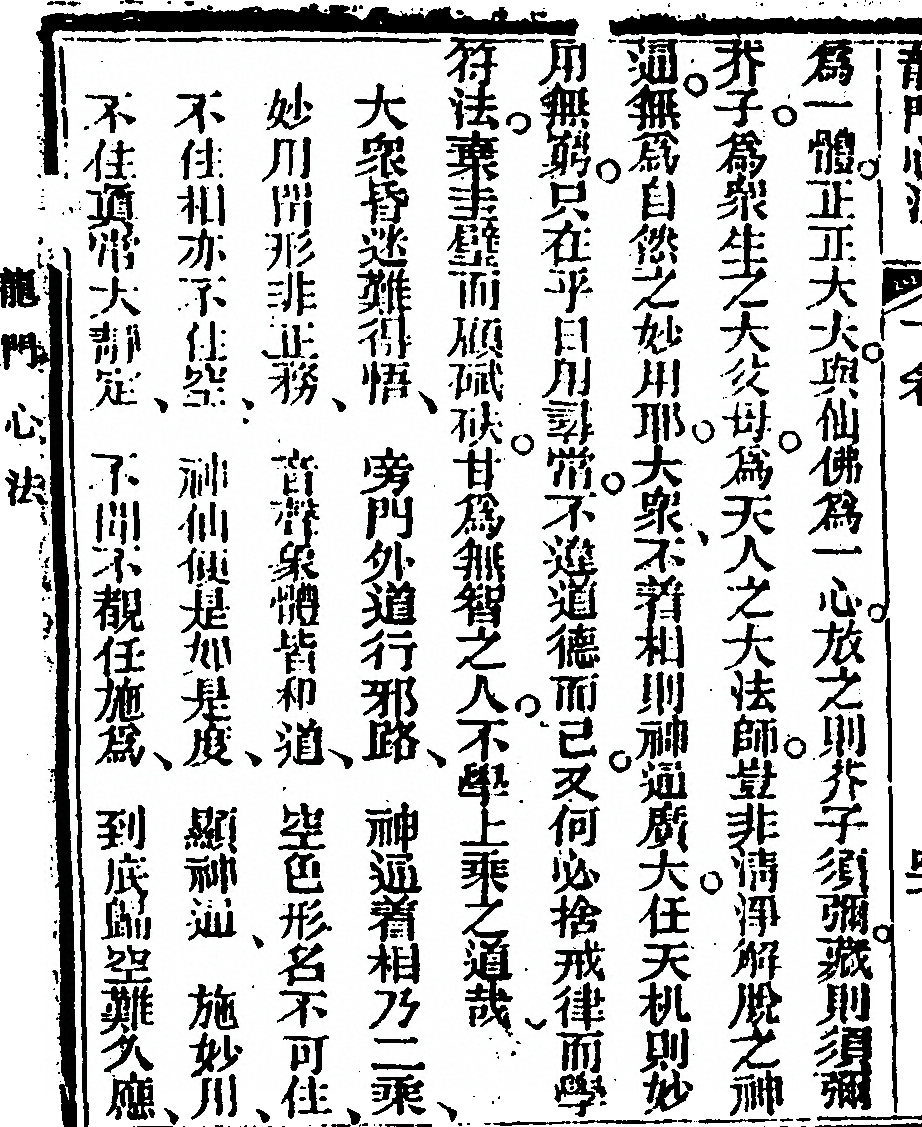 為一體正正大大與仙佛為一心放之則芥子須彌藏則須彌
芥子為眾生之大父母為天人之大法師豈非清淨解脫之神
通無為自然之妙用耶大眾不着相則神通廣大任天机則妙
用無窮只在乎日用尋常不違道德而已又何必捨戒律而學
符法棄圭璧而顧碔砆甘為無智之人不學上乘之道哉
大眾昏迷難得悟、旁門外道行邪路、神通着相乃二乘、
妙用間形非正務、音聲象體皆和道、空色形名不可住、
不住相亦不住空、神仙便是如是度、顯神通、施妙用、
不住眞常大靜定、不聞不覩任施為、到底歸空難久應、
龍門心法